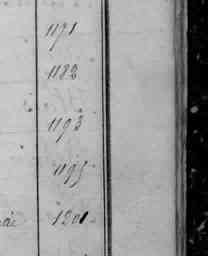 1171
1182
1193
1195
1201